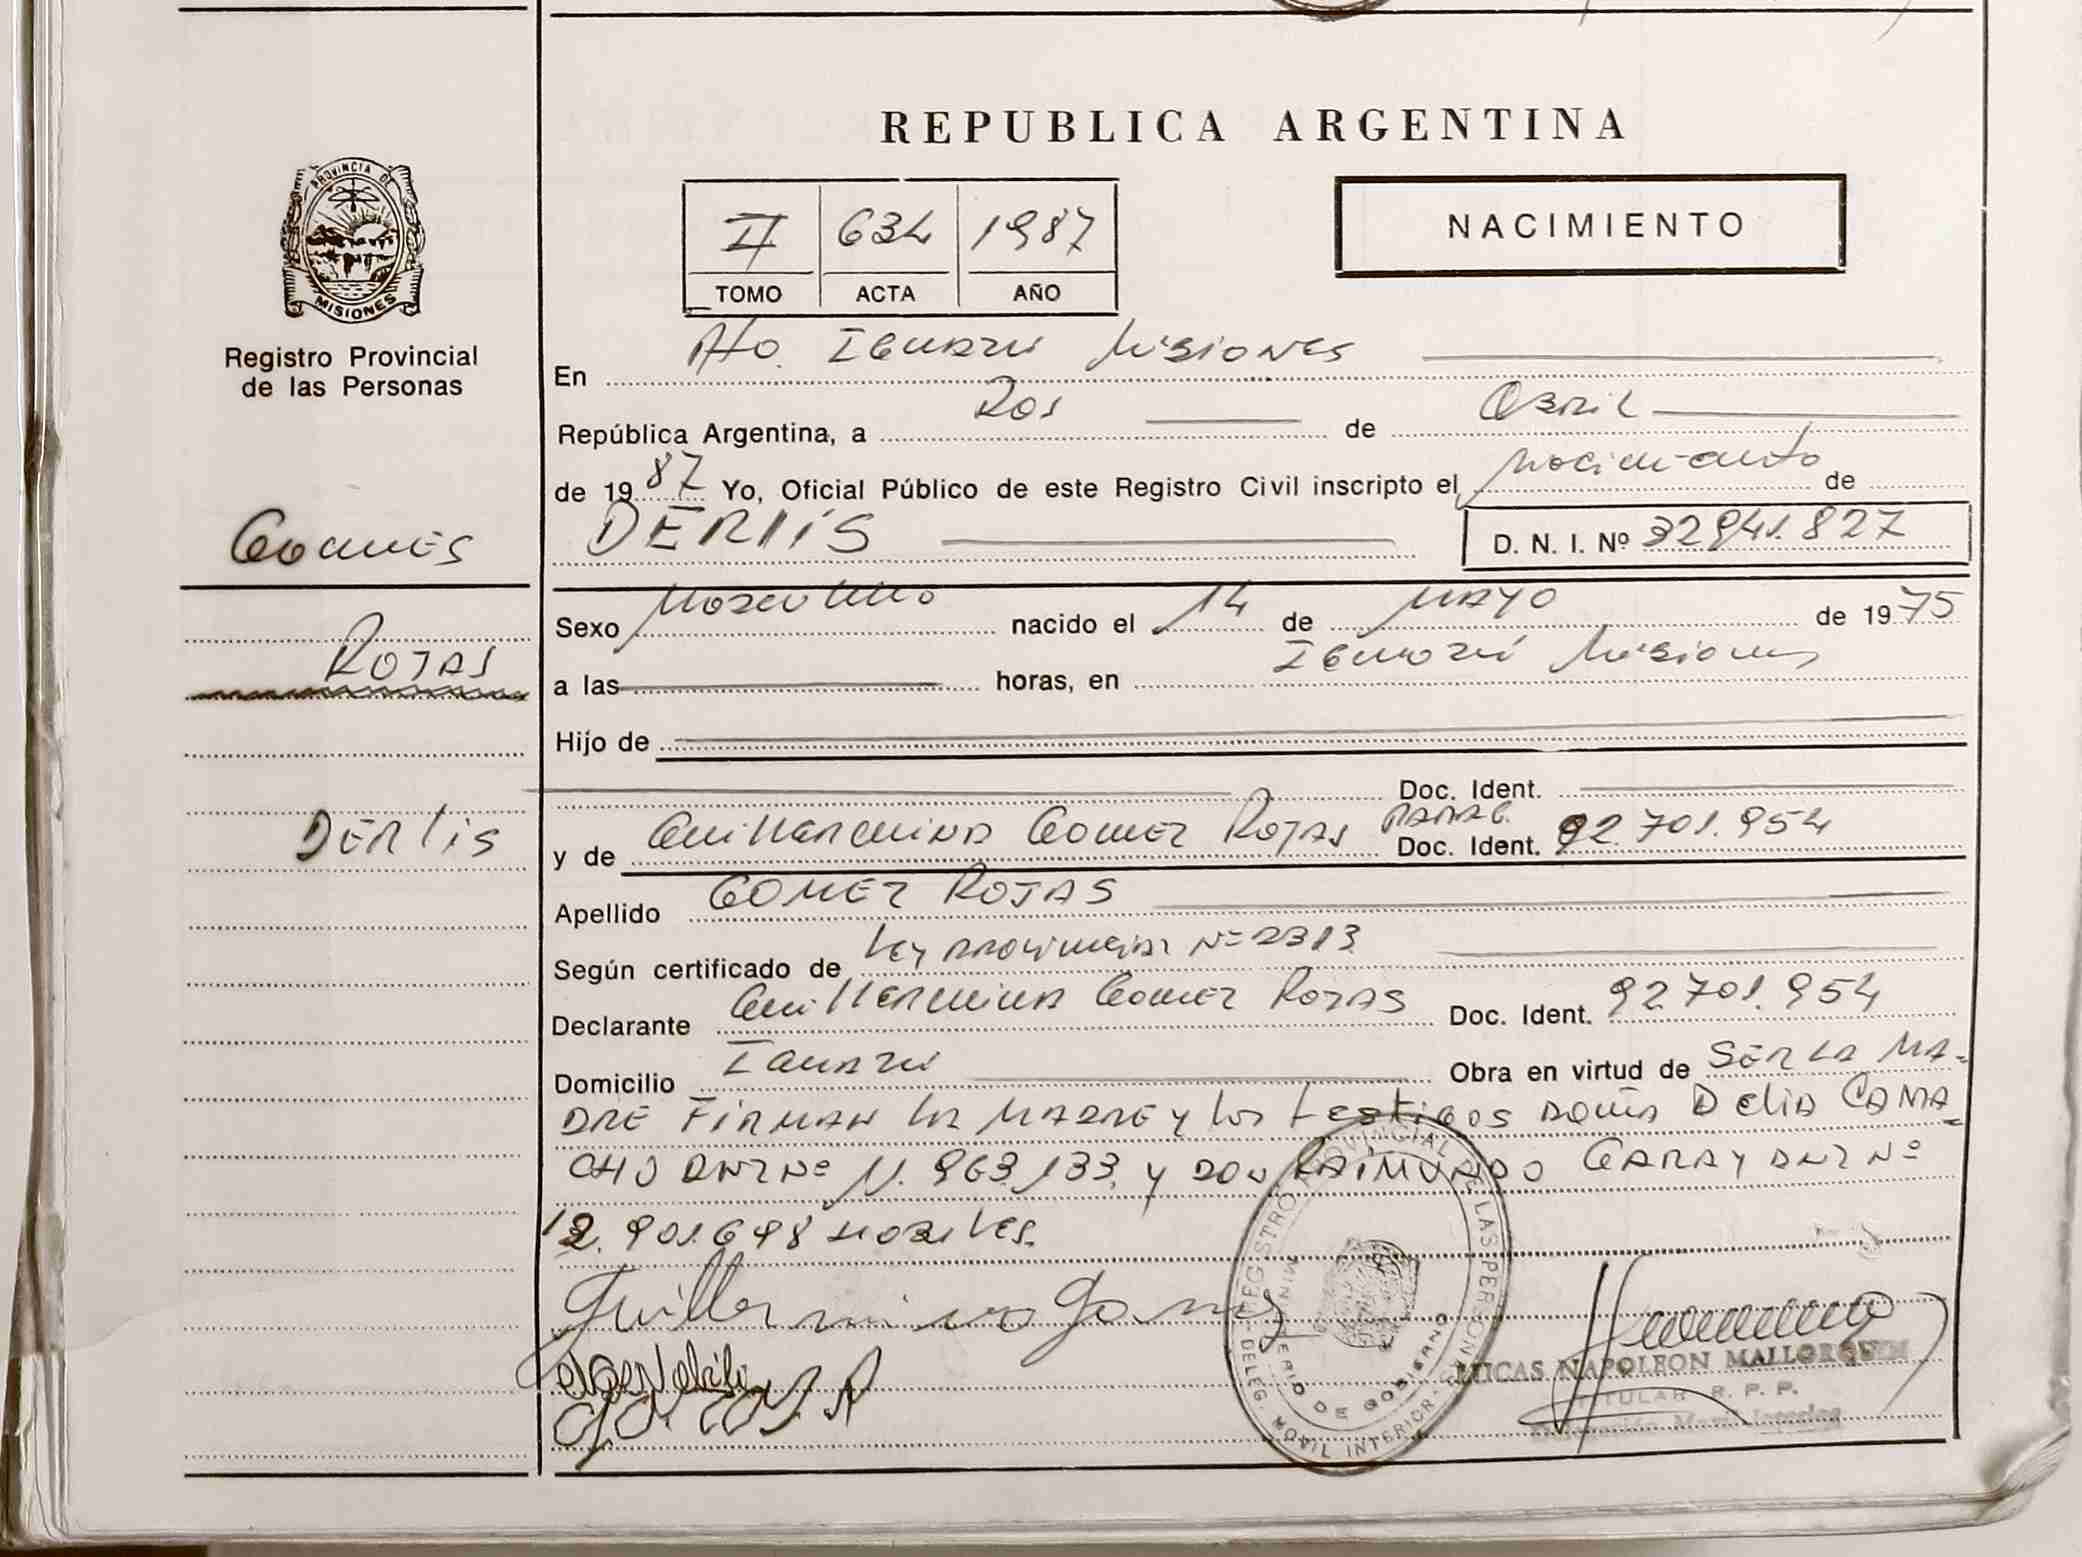 REPUBLICA ARGENTINA
PROVINCIA DE
MISIONES
Registro Provincial
de las Personas
II 634 1987
TOMO ACTA AÑO
NACIMIENTO
En Pto. Iguazu Misiones
República Argentina, a Dos de Abril
de 1987 Yo, Oficial Público de este Registro Civil inscripto el Nacimiento de
DERLIS D. N. I. Nº 32941.827
Gomes
Rojas
Derlis
Sexo Masculino nacido el 14 de MAYO de 1975
a las horas, en Iguazú Misiones
Hijo de
Doc. Ident.
y de Guillermina Gomez Rojas PARAG. Doc. Ident. 92.701.954
Apellido GOMEZ ROJAS
Según certificado de Ley Provincial Nº 2313
Declarante Guillermina Gomez Rojas Doc. Ident. 92.701.954
Domicilio Iguazu Obra en virtud de SER LA MA-
DRE FIRMAN LA MADRE y los testigos DOÑA Delia CAMA-
CHO DNI Nº 11.963.133 y DON RAIMUNDO GARAY DNI Nº
12.901.698 HABILES.
Guillermina Gomez
REGISTRO PROVINCIAL DE LAS PERSONAS
DELEG. MOVIL INTERIOR
MINISTERIO DE GOBIERNO
LUCAS NAPOLEON MALLORQUIN
TITULAR R. P. P.